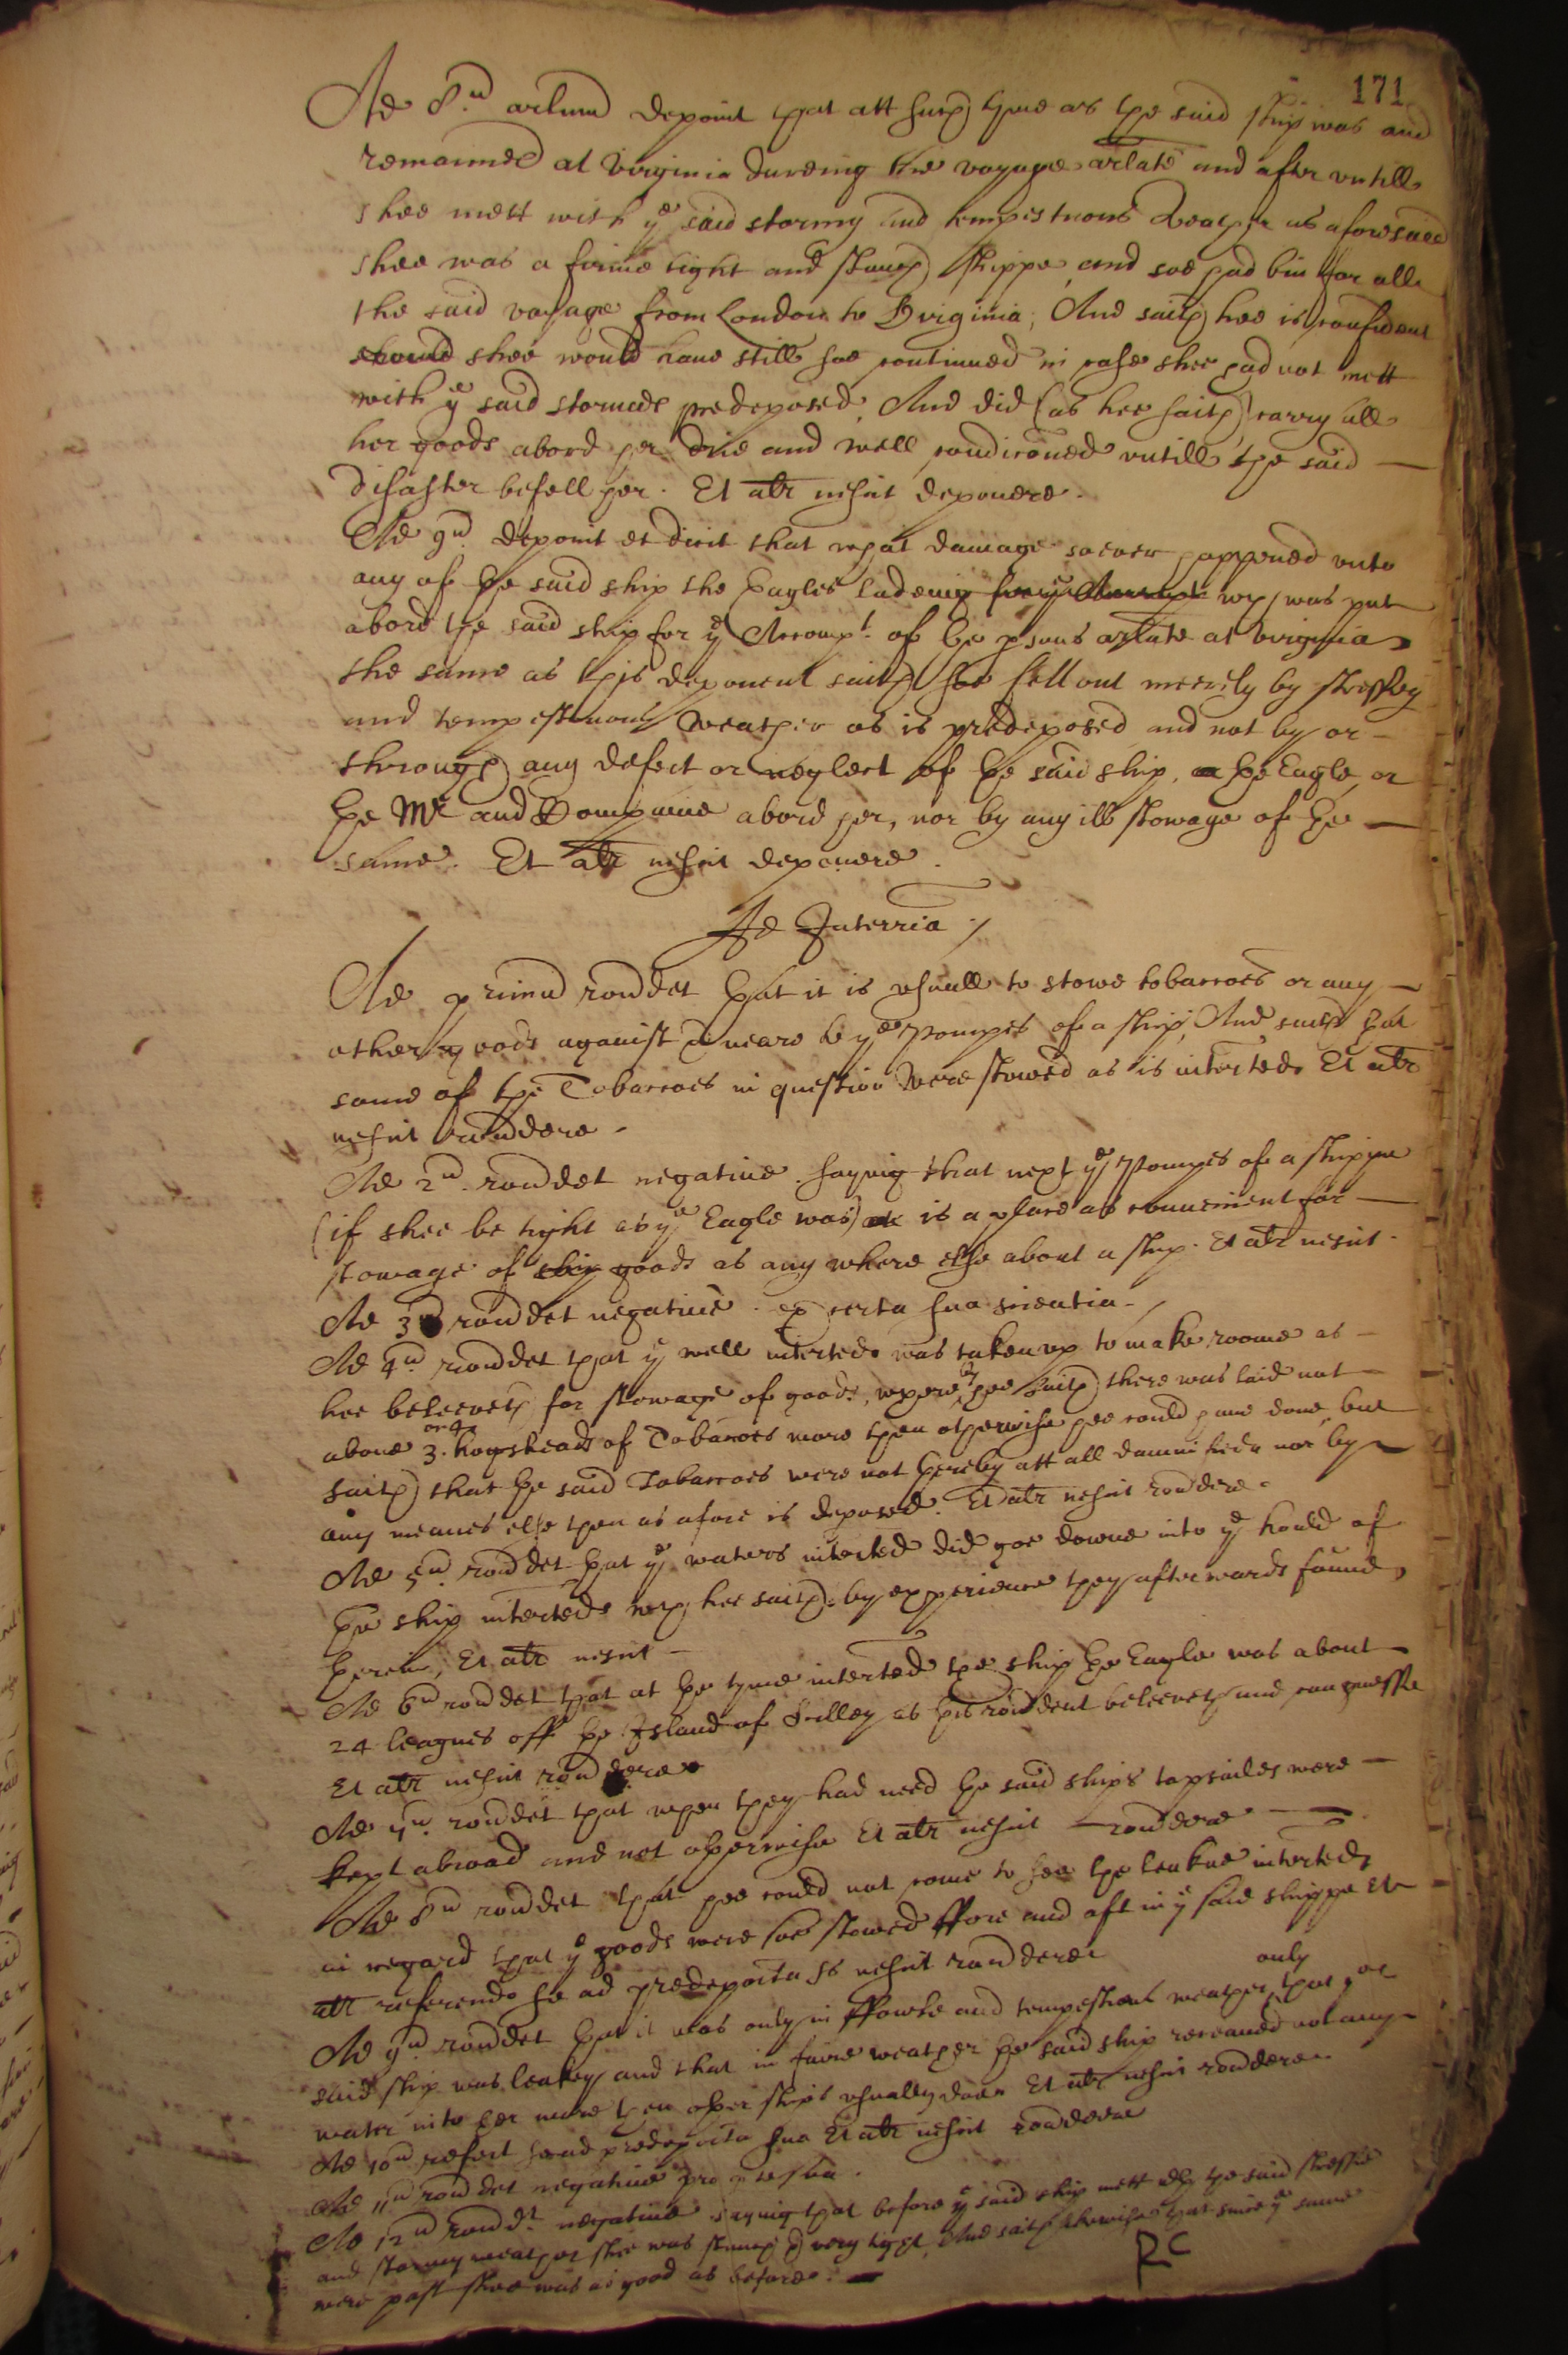 171
Ad 8.um arlum deponit that att such tyme as the said ship was and
remained at Virginia dureing the voyage arlate and after untill
shee mett with ye said stormy and tempestuous Weather as aforesaid
shee was a firme tight and staunch shippe, and soe had bin for all
the said voyage from London to Virginia, And saith hee is confident
should shee would have still soe continued in case shee had not mett
with ye said stormes predeposed, And did (as hee saith) carry all
her goods abord her drie and well condicõned untill the said
disaster befell her. Et alr nescit deponere.
Ad 9um deponit et dicit that what damage soever happened unto
any of the said ship the Eagles ladeing for ye Accompt wch was put
abord the said ship for ye Accompt. of the psons arlate at Virginia
the same as this deponent saith soe fell out meerely by stresse
and tempestuous Weather as is predeposed and not by or
through any defect or neglect of the said ship, the Eagle, or
the Mr and Companie abord her, nor by any ill stowage of the
same. Et alr nescit deponere.
Ad Interria /
Ad primu rondet that it is usuall to stowe tobaccoes or any
other goods against or neare to ye Pompes of a ship, And saith that
some of the Tobaccoes in question Were stowed as is interted. Et alr
nescit rondere.
Ad 2um. rondet negative. saying that next ye Pompes of a shippe
(if shee be tight as ye Eagle was) is a place as convenient for
stowage of ship goods as any where else about a ship. Et alr nescit.
Ad 3um rondet negative. ex certa sua scientia. /
Ad 4um rondet that ye well interted. was taken up to make roome as
hee beleeveth for stowage of goods, whereby hee saith there was laid not
above 3. or 4 hogsheads of Tobaccoes more then otherwise hee could have done, but
saith that the said Tobaccoes were not thereby att all damnified, nor by
any meanes else then as afore is deposed. Et alr nescit rondere.
Ad 5um rondet that ye waters interted did goe downe into ye hould of
the ship interted, wch hee saith by experience they afterwards found,
therein, Et alr nescit
Ad 6um rondet that at the tyme interted the ship the Eagle was about
24 leagues off the Island of Silley as this rondent beleeveth and can guesse
Et alr nescit rondere
Ad 7um. rondet that when they had need the said ships topsailes were
kept abroad and not otherwise Et alr nescit rondere
Ad 8um rondet that hee could not come to see the leakes interted,
in regard that ye goods were soe stowed ffore and aft in ye said shippe Et
alr referendo se ad predeposita sa nescit rondere
Ad 9um rondet that it was only in ffowle and tempestious weather, only that ye
said ship was leakey and that in faire weather the said ship receaved not any
water into her more then other ships usually doe. Et alr nescit rondere.
Ad 10um refert se ad predeposita sua Et alr nescit rondere
Ad 11um rondet negative pro parte sua.
Ad 12um rondt. negative saying that before ye said ship mett wth the said stresse
and stormy weather shee was staunch & very tight, And saith likewise that since ye same
were past shee was as good as before.
RC